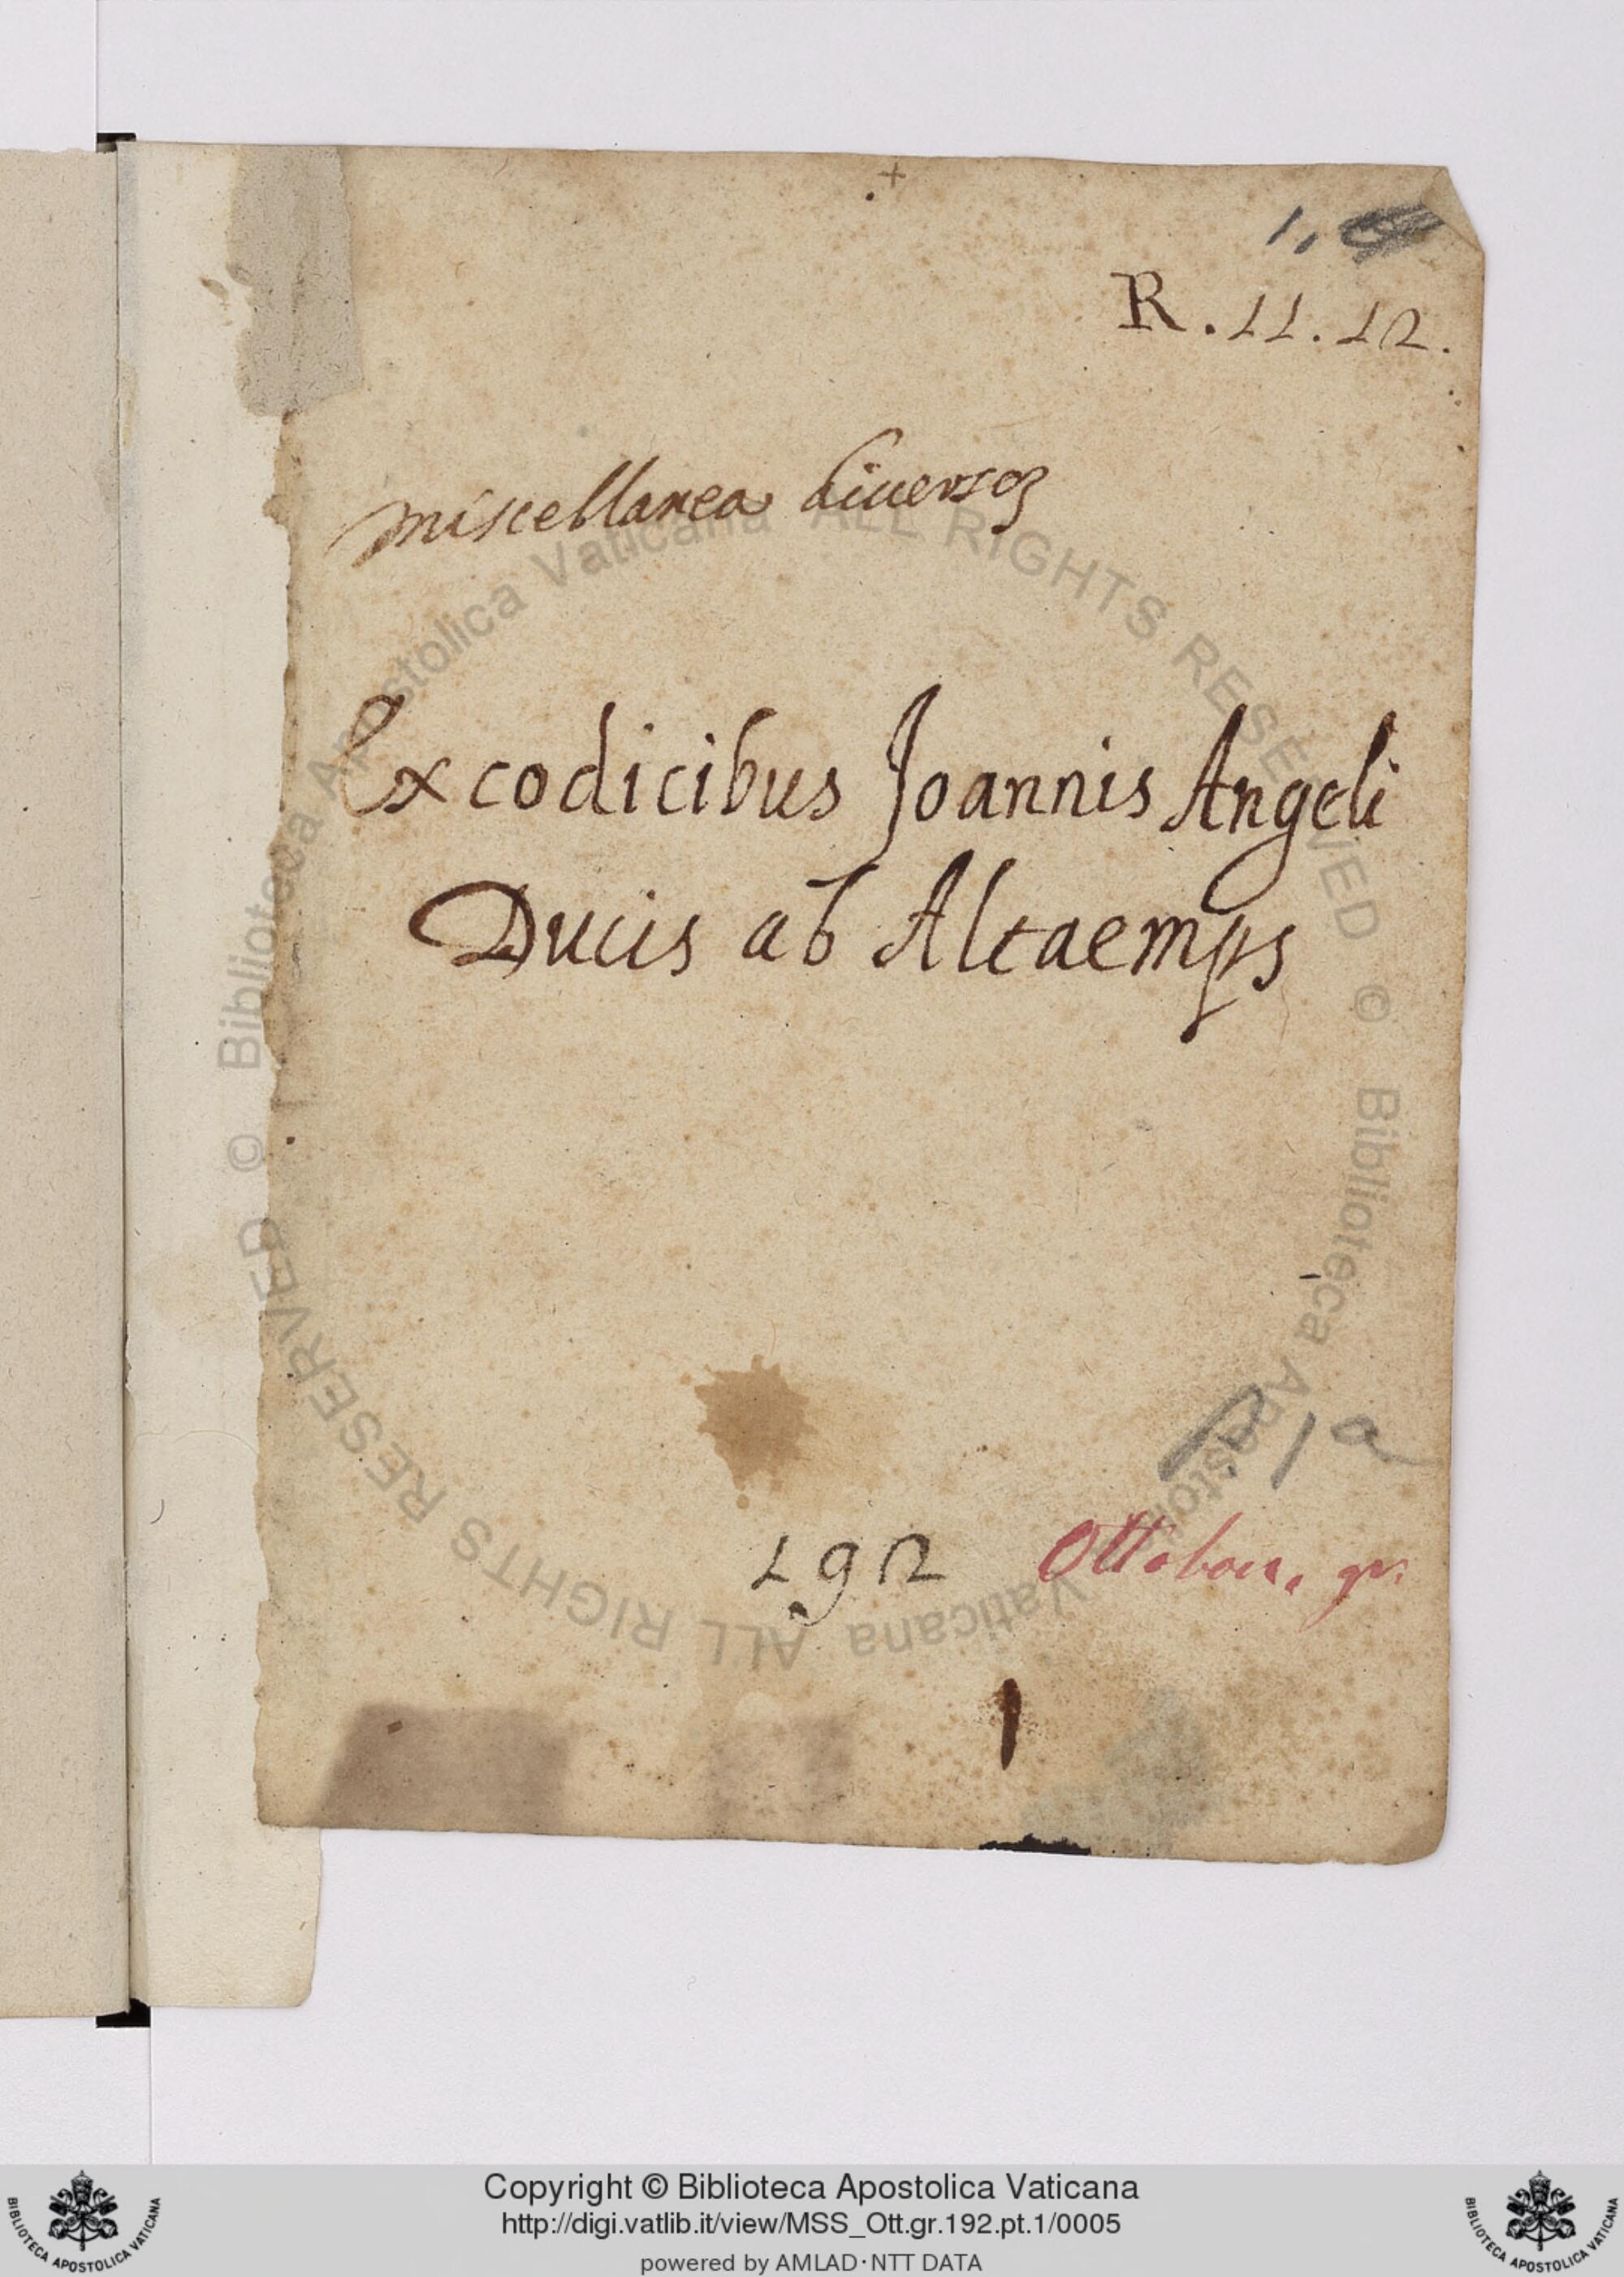 R. 11. 12.
miscellanea
Ex codicibus Joannis Angeli
Ducis ab Altaemps
192 Ottobon. gr.
1
© Biblioteca Apostolica Vaticana ALL RIGHTS RESERVED © Biblioteca Apostolica Vaticana ALL RIGHTS RESERVED
Copyright © Biblioteca Apostolica Vaticana
http://digi.vatlib.it/view/MSS_Ott.gr.192.pt.1/0005
powered by AMLAD·NTT DATA
BIBLIOTECA APOSTOLICA VATICANA
BIBLIOTECA APOSTOLICA VATICANA